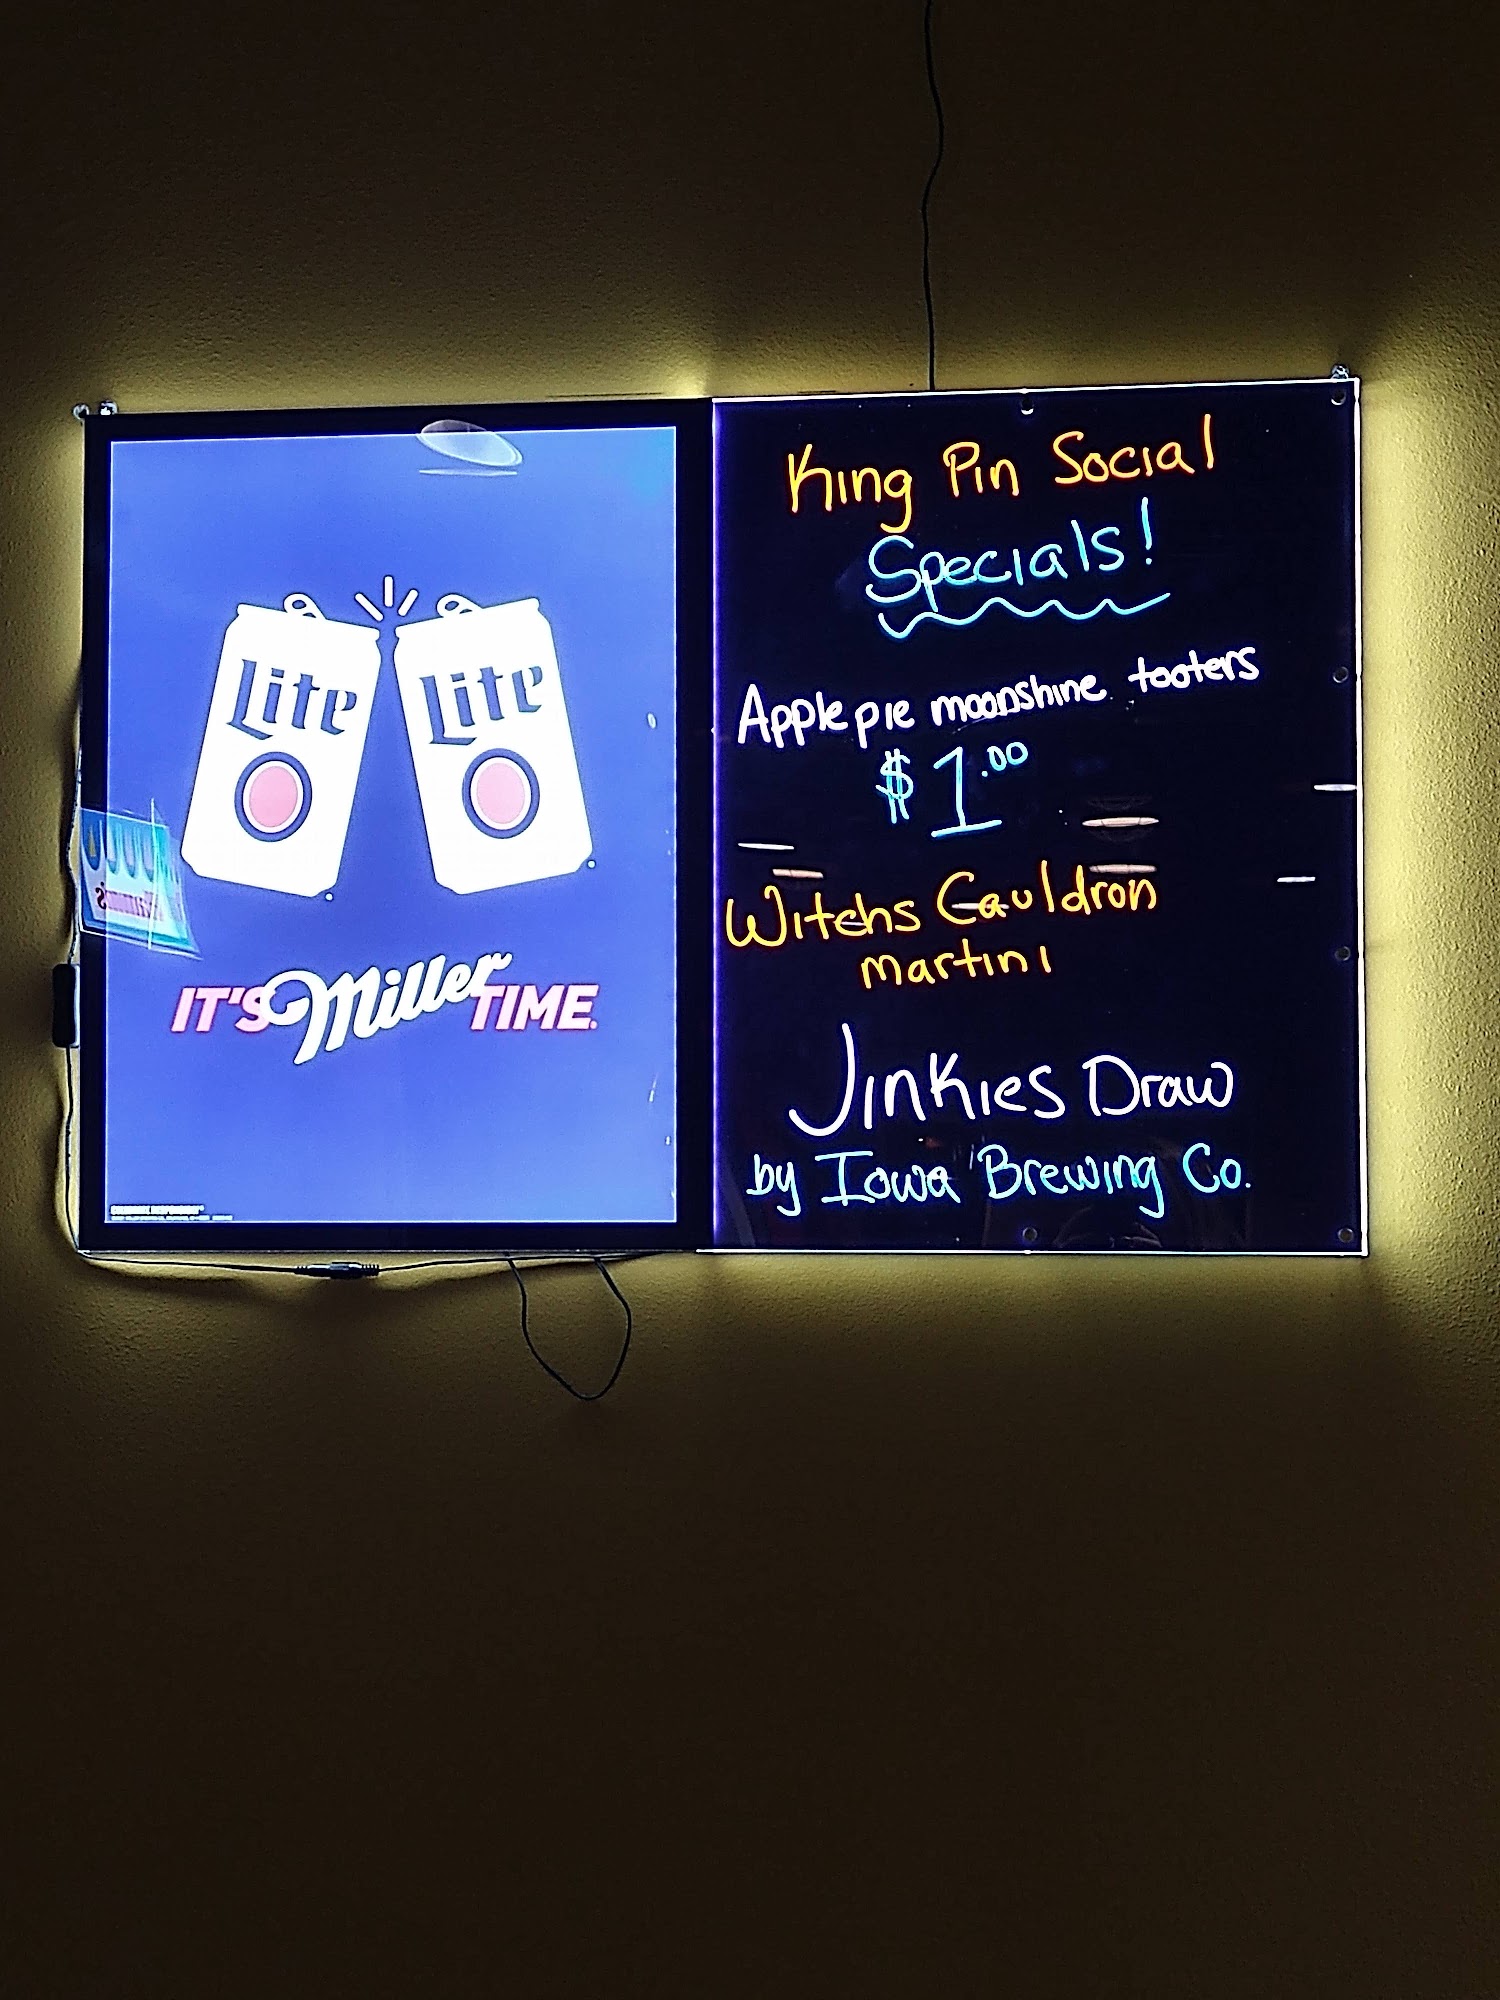 Lite
Lite
IT'S Miller TIME.
King Pin Social
Specials!
Apple pie moonshine tooters
$1.00
Witchs Cauldron
martini
Jinkies Draw
by Iowa Brewing Co.